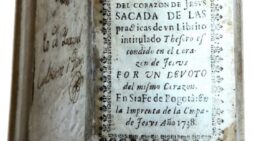 DEL CORAZON DE JESUS
SACADA DE LAS
practicas de vn Librito
intitulado Thesoro es
condido en el Cora-
zon de Jesus
POR UN DEVOTO
del mismo Corazon.
En Sta Fe de Bogotá: En
la Imprenta de la Compa-
de Jesvs Año 1738.